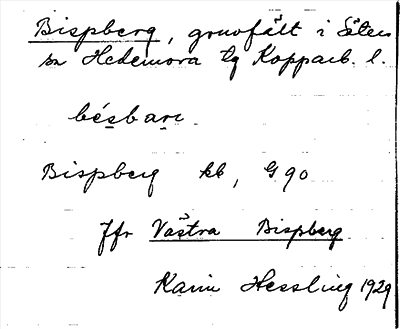 Bispberg, gruvfält i Säters
sn Hedemora tg Kopparb. l.
bésbarr
Bispberg kb, G 90
Jfr Västra Bispberg
Karin Hessling 1929